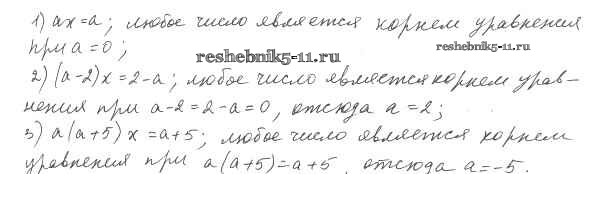 1) ax=a; любое число является корнем уравнения
при a=0;
reshebnik5-11.ru
reshebnik5-11.ru
2) (a-2)x=2-a; любое число является корнем урав-
нения при a-2=2-a=0, отсюда a=2;
3) a(a+5)x=a+5; любое число является корнем
уравнения при a(a+5)=a+5. отсюда a=-5.